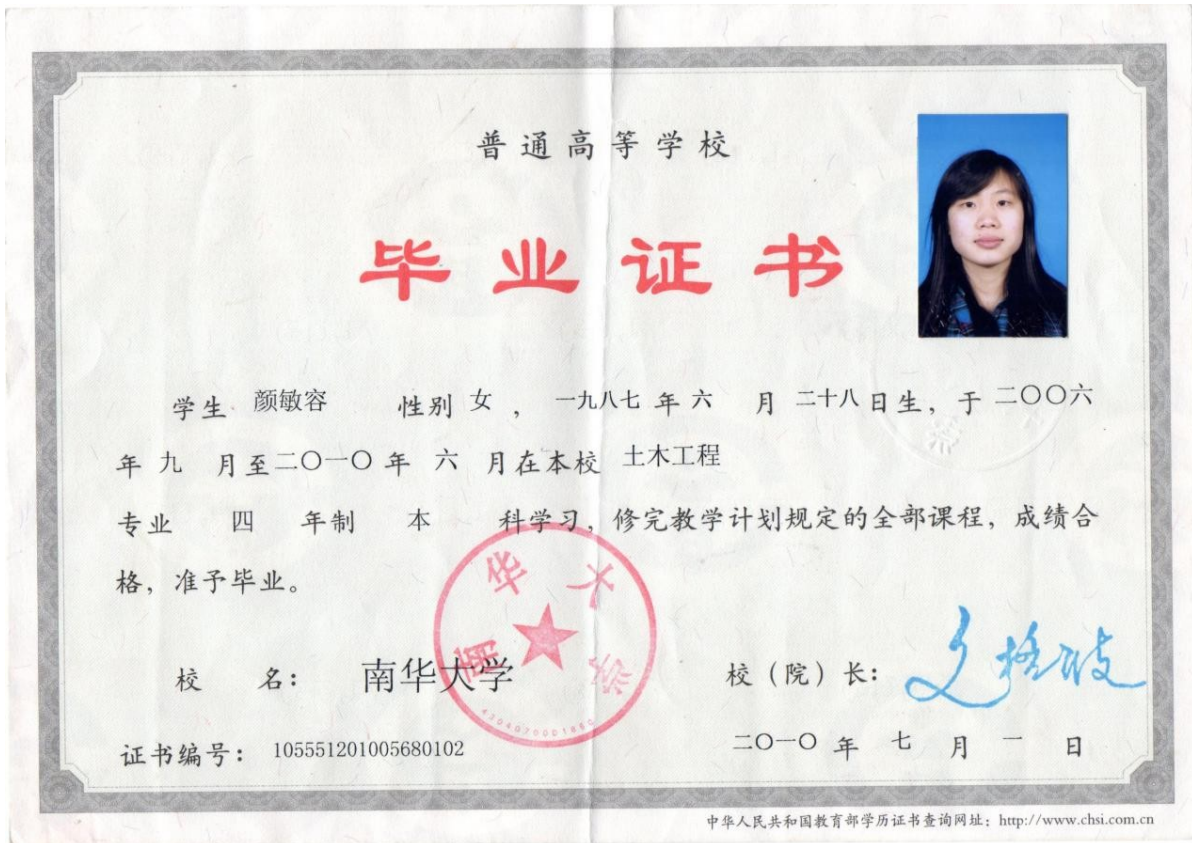 普通高等学校
毕业证书
学生 颜敏容 性别 女 ， 一九八七 年 六 月 二十八 日生，于 二〇〇六
年 九 月至 二〇一〇 年 六 月在本校 土木工程
专业 四 年制 本 科学习，修完教学计划规定的全部课程，成绩合
格，准予毕业。
南华大学
校 名： 南华大学
校（院）长： 文格波
证书编号： 105551201005680102
二〇一〇 年 七 月 一 日
中华人民共和国教育部学历证书查询网址：http://www.chsi.com.cn